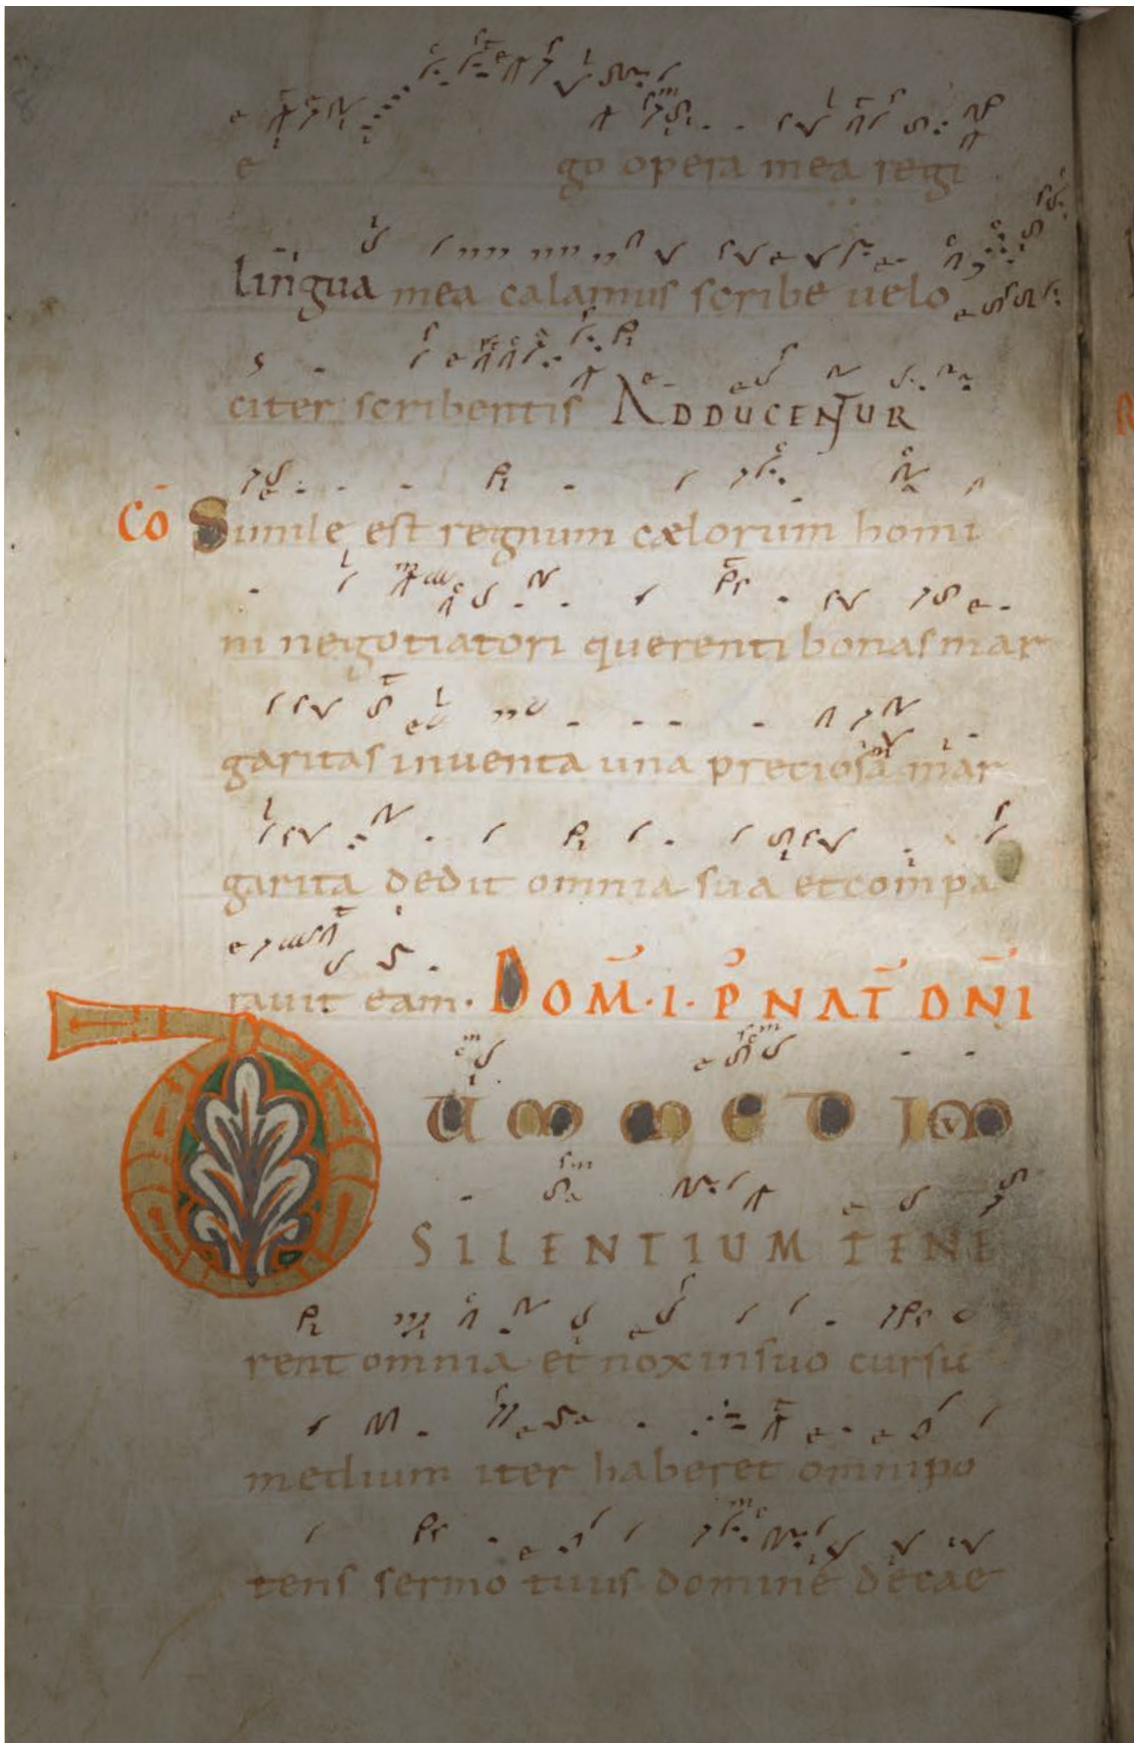 e go opera mea regi
lingua mea calamus scribe velo
citer scribentis ADDUCENTUR
CŌ Simile est regnum cælorum homi
ni negotiatori querenti bonas mar
garitas inventa una preciosa mar
garita dedit omnia sua et compa
ravit eam. DOM̄·I·P̄ NAT̄ DN̄I
DUM MEDIUM
SILENTIUM TENE
rent omnia et nox in suo cursu
medium iter haberet omnipo
tens sermo tuus domine de cae